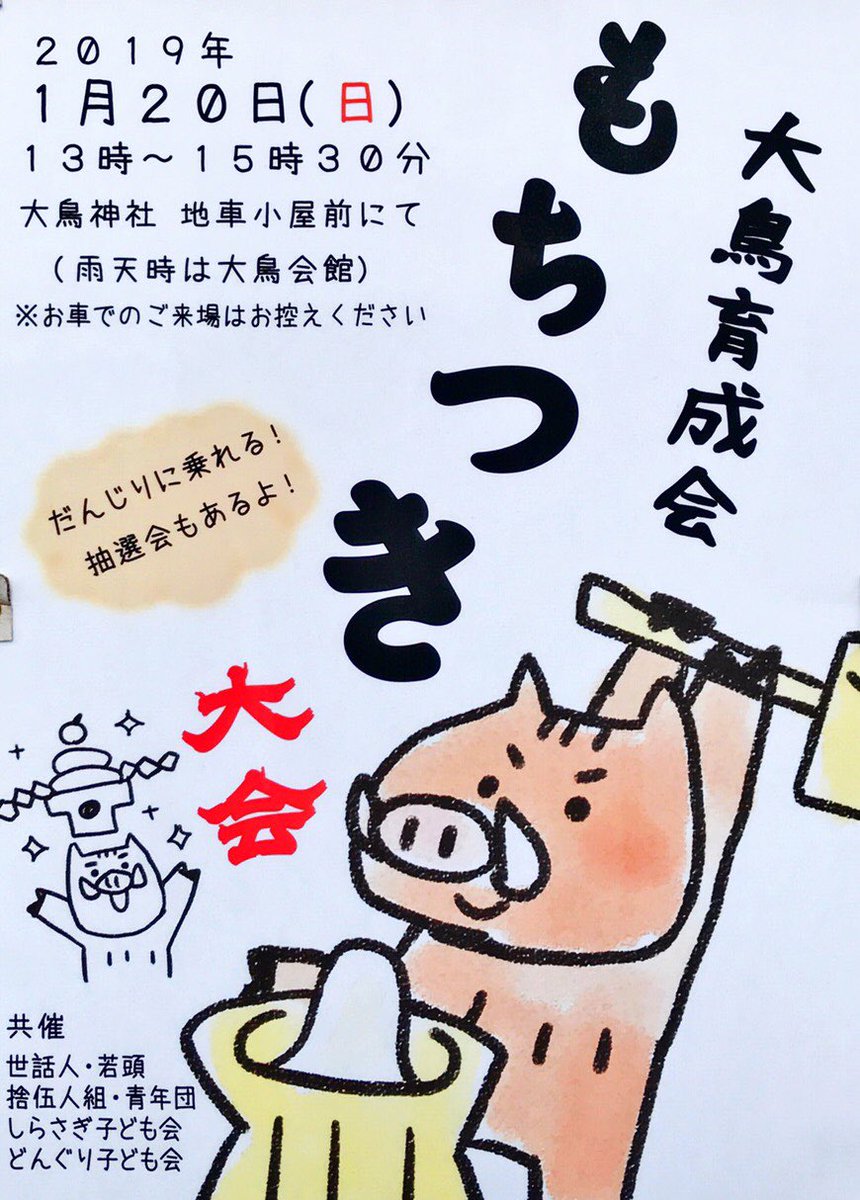 2019年
1月20日(日)
13時～15時30分
大鳥神社 地車小屋前にて
(雨天時は大鳥会館)
※お車でのご来場はお控えください
大鳥育成会
もちつき
大会
だんじりに乗れる!
抽選会もあるよ!
共催
世話人・若頭
捨伍人組・青年団
しらさぎ子ども会
どんぐり子ども会